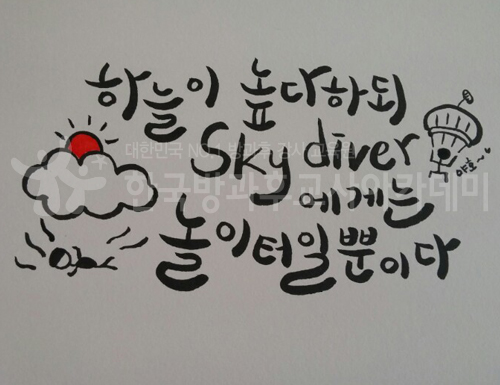 하늘이 높다하되
Sky diver
에게는
놀이터일뿐이다
야호~
대한민국 NO.1 방과후 강사 교육원
한국방과후교사아카데미